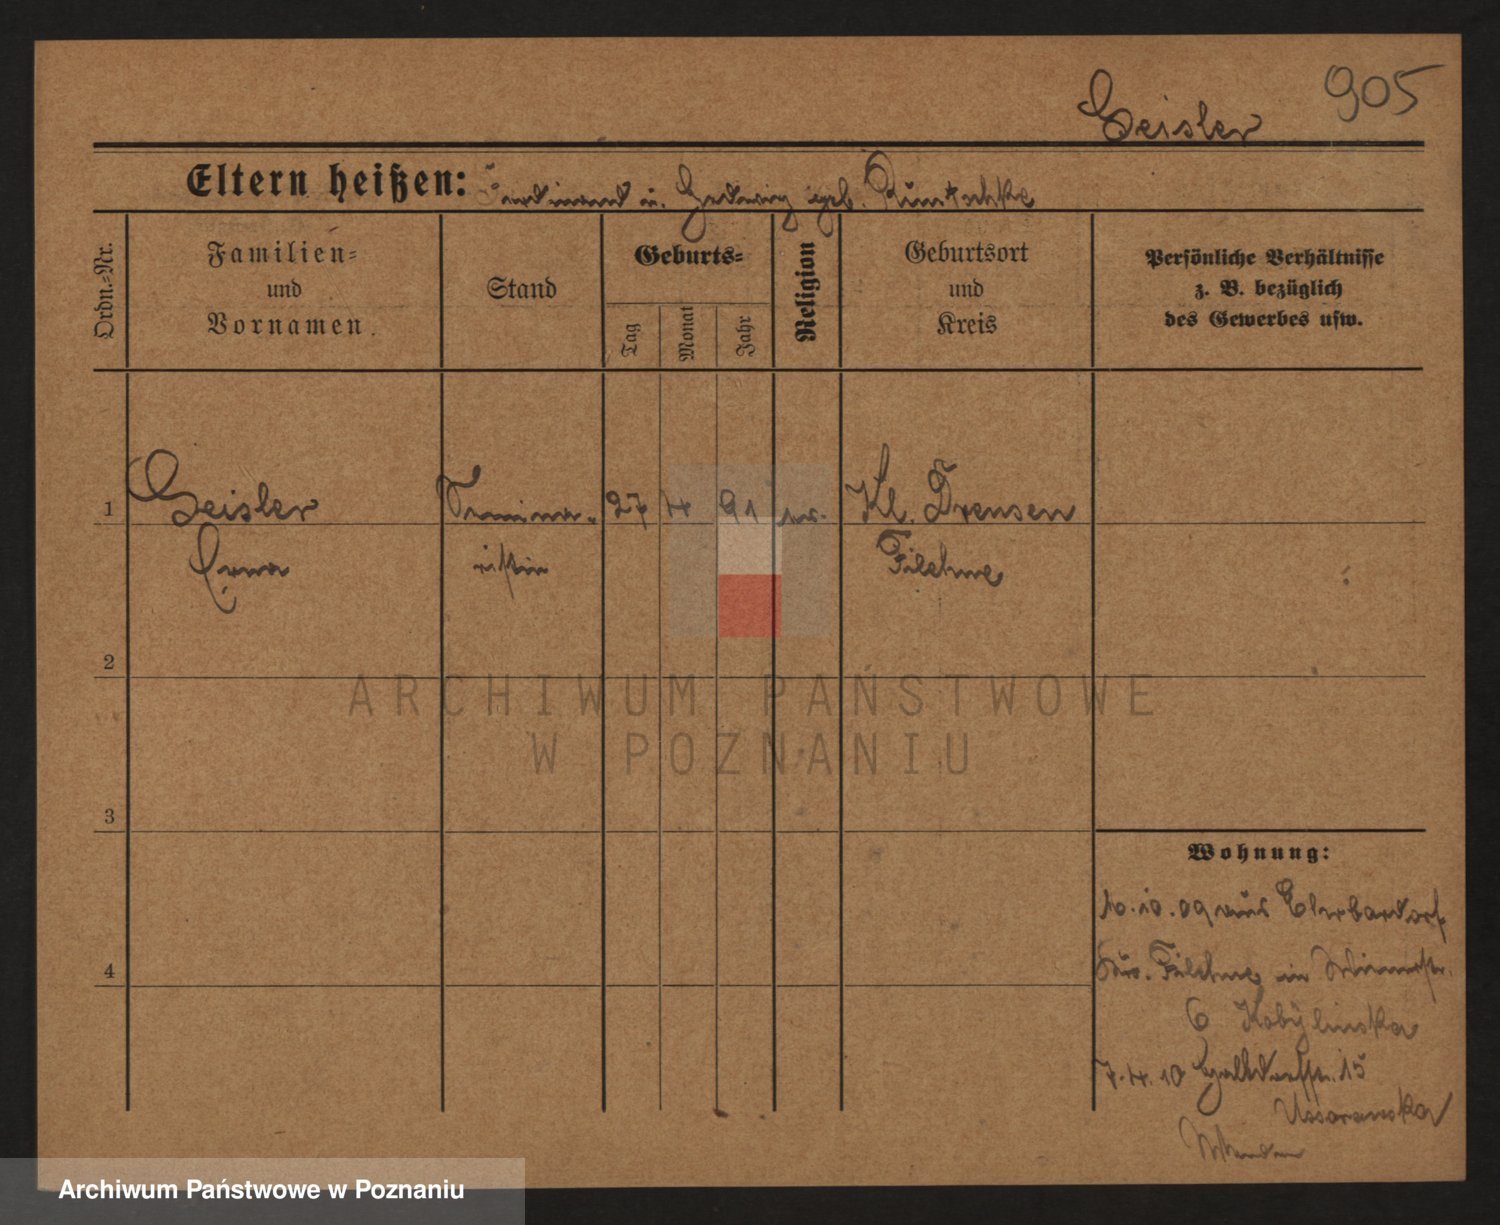 905
Geisler
Eltern heißen: Ferdinand u. Hedwig geb. Runtschke
Ordn.-Nr.
Familien-
und
Vornamen.
Stand
Geburts-
Tag
Monat
Jahr
Religion
Geburtsort
und
Kreis
Persönliche Verhältnisse
z. B. bezüglich
des Gewerbes usw.
1
Geisler
Semina-
27
4
91
Kl. Drensen
Erna
ristin
Filehne
2
ARCHIWUM PAŃSTWOWE
W POZNANIU
3
Wohnung:
10.10.09 aus
4
Filehne in
6 Kobylinska
7.4.10 15
Archiwum Państwowe w Poznaniu